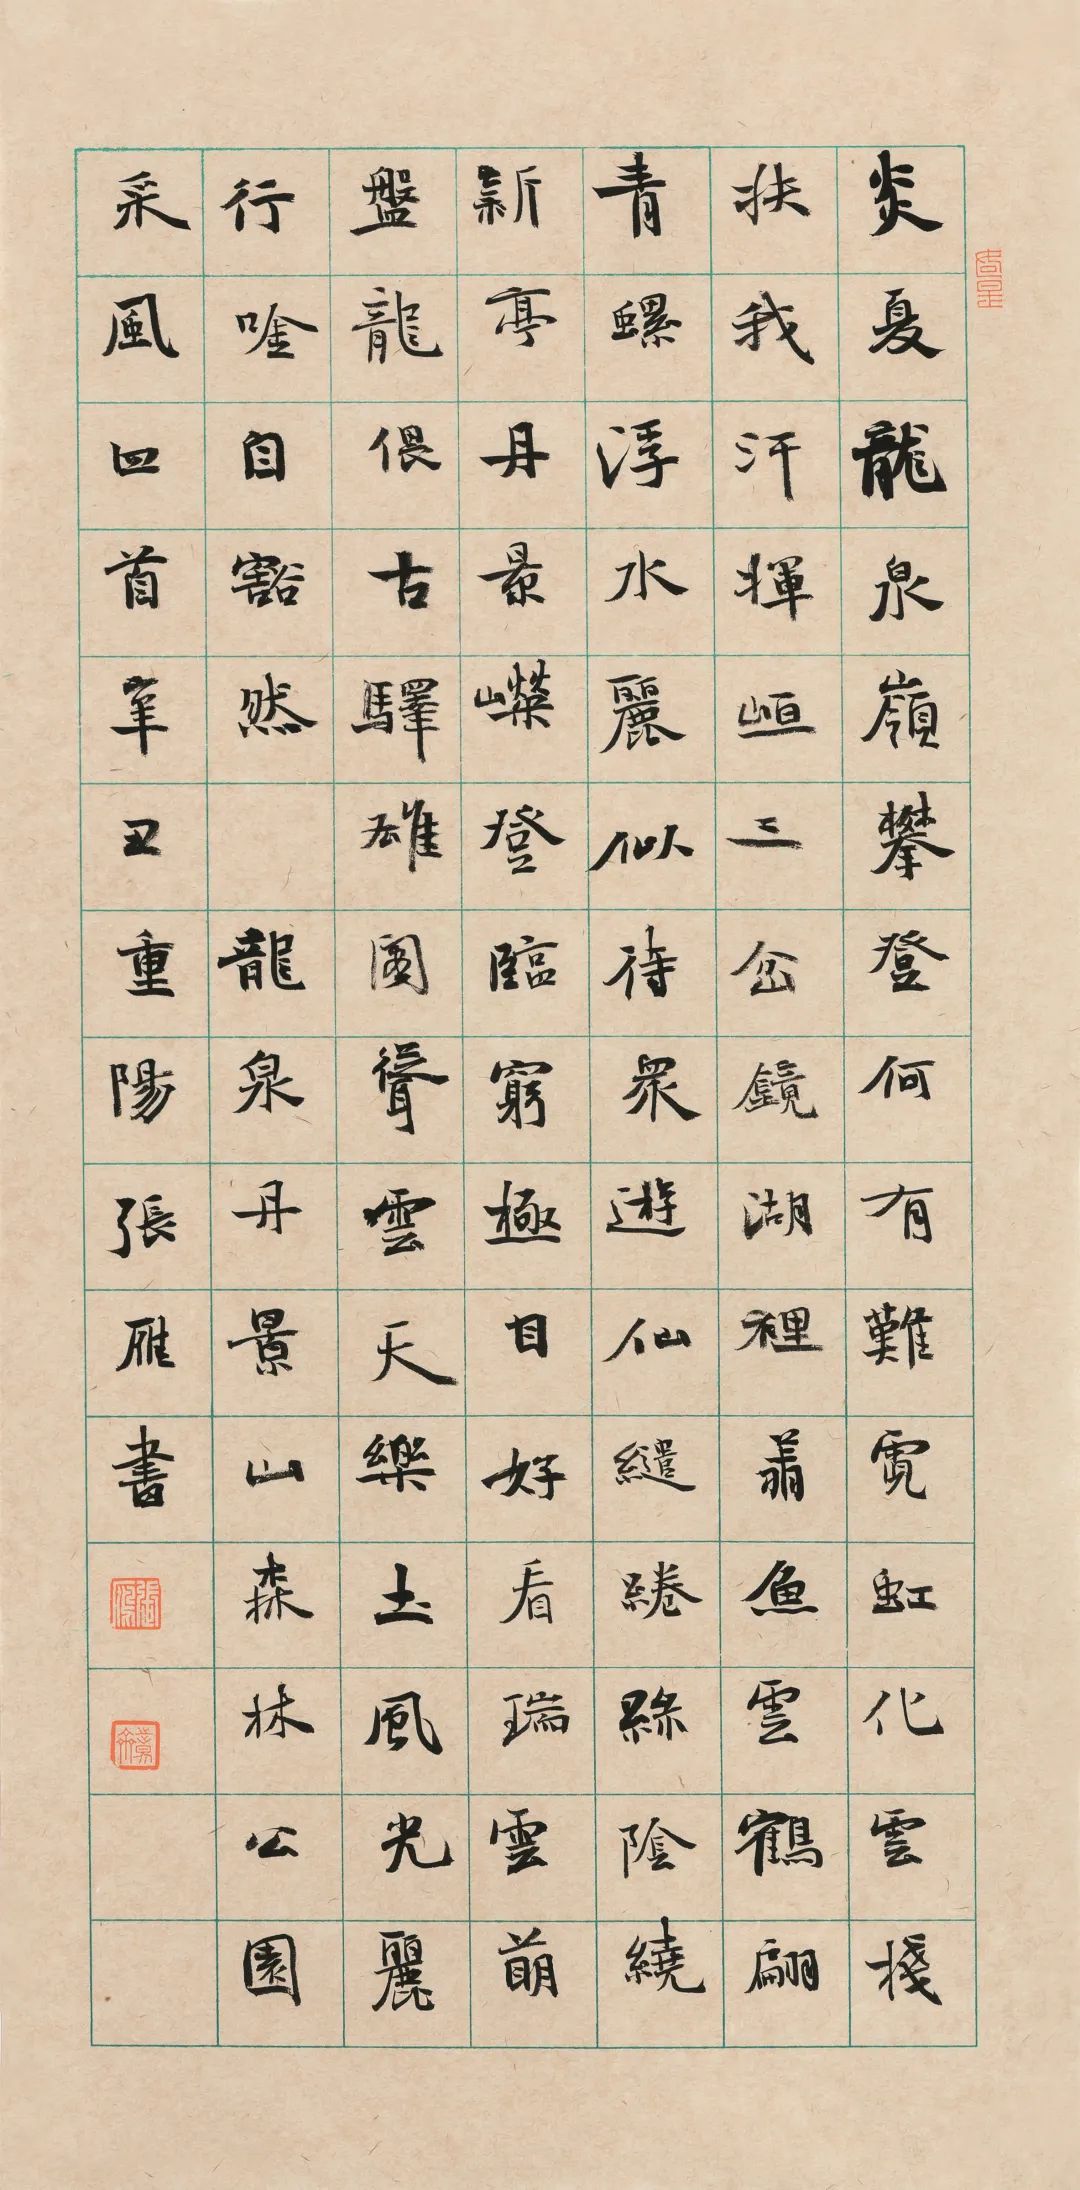 炎夏龍泉嶺攀登何有難霓虹化雲棧
扶我汗揮峘三岔鏡湖裡魚雲鶴翩
青螺浮水麗似待衆遊仙繾綣綠陰繞
新亭丹景嶸登臨窮極目好看瑞雲萌
盤龍偎古驛雄圖聳雲天樂土風光麗
行唫自豁然 龍泉丹景山森林公園
采風四首辛丑重陽張雁書